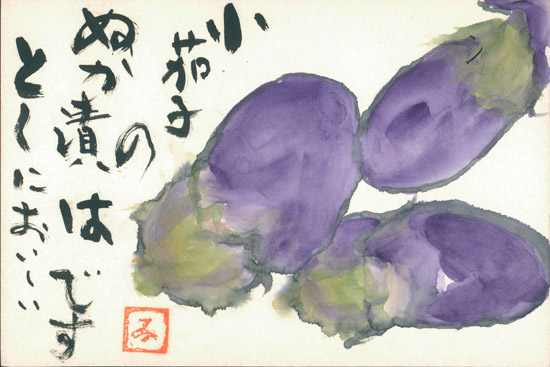 小茄子の
ぬか漬は
とくにおいしい
です
み